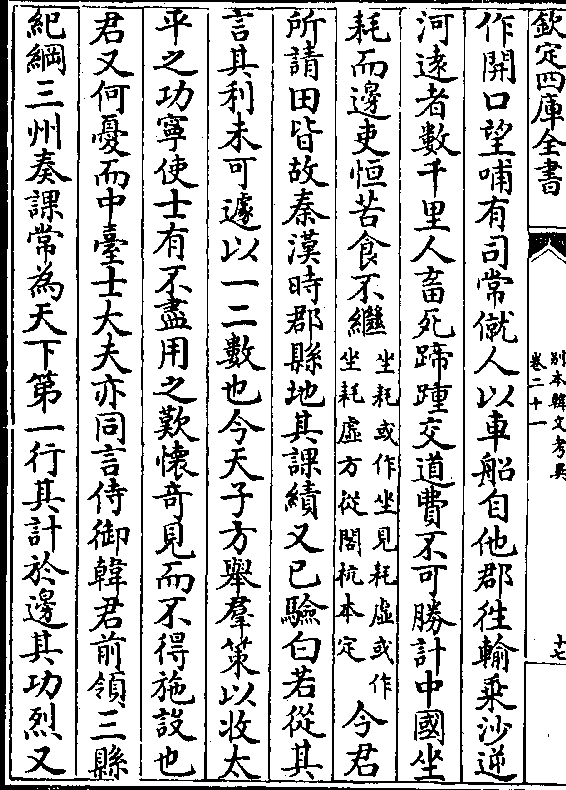 欽定四庫全書
別本韓文考異
卷二十一
十七
作開口望哺有司常僦人以車船自他郡徃輸乘沙逆
河逺者數千里人畜死蹄踵交道費不可勝計中國坐
耗而邊吏恒苦食不繼
坐耗或作坐見耗虛或作
坐耗虛方從閣杭本定
今君
所請田皆故秦漢時郡縣地其課績又已驗白若從其
言其利未可遽以一二數也今天子方舉羣策以收太
平之功寧使士有不盡用之歎懷竒見而不得施設也
君又何憂而中臺士大夫亦同言侍御韓君前領三縣
紀綱三州奏課常為天下第一行其計於邊其功烈又